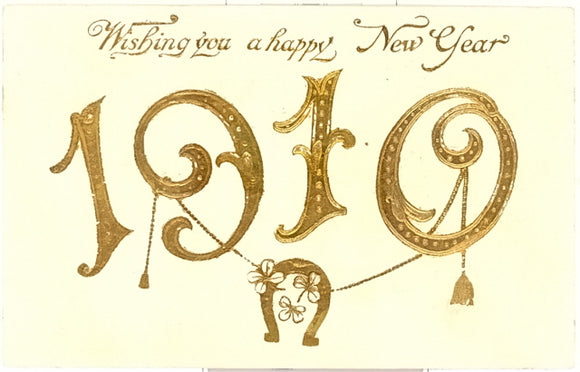 Wishing you a happy New Year
1910